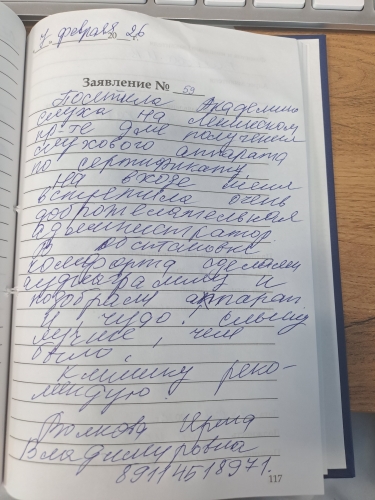 7 февраля 2026
Заявление № 59
Посетила Академию
слуха на Ленинском
пр-те для получения
слухового аппарата
по сертификату.
На входе меня
встретила очень
доброжелательная
администратор.
В обстановке
комфорта сделали
аудиограмму и
подобрали аппарат.
И чудо! слышу
лучше, чем
было.
Клинику реко-
мендую.
Волкова Ирина
Владимировна
89114518971.
117